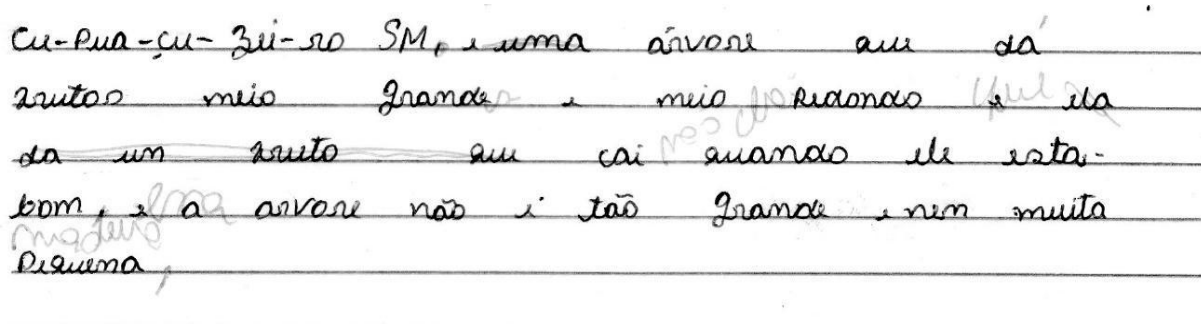 Cu-Pua-çu-Zei-ro SM, e uma árvore que dá
frutos meio grande e meio Redondo e ela
da um fruto que cai quando ele esta-
bom, e a arvore não é tão grande e nem muita
Pequena,